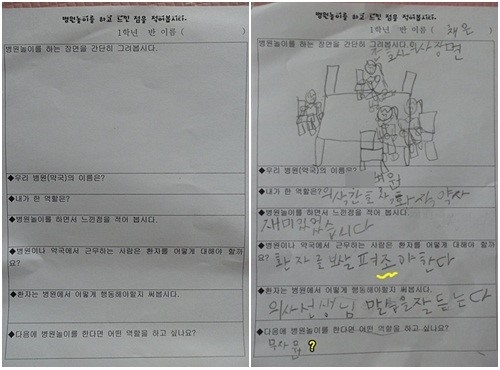 병원놀이를 하고 느낀 점을 적어봅시다.
1학년 반 이름 ( )
병원놀이를 하는 장면을 간단히 그려봅시다.
◆우리 병원(약국)의 이름은?
◆내가 한 역할은?
◆병원놀이를 하면서 느낀점을 적어 봅시다.
◆병원이나 약국에서 근무하는 사람은 환자를 어떻게 대해야 할까
요?
◆환자는 병원에서 어떻게 행동해야할지 써봅시다.
◆다음에 병원놀이를 한다면 어떤 역할을 하고 싶나요?
병원놀이를 하고 느낀 점을 적어봅시다.
1학년 반 이름 ( 채운 )
병원놀이를 하는 장면을 간단히 그려봅시다.
장면
◆우리 병원(약국)의 이름은?
◆내가 한 역할은? 환자, 약사
◆병원놀이를 하면서 느낀점을 적어 봅시다.
재미있었습니다
◆병원이나 약국에서 근무하는 사람은 환자를 어떻게 대해야 할까
요? 환자를 보살펴조야한다
◆환자는 병원에서 어떻게 행동해야할지 써봅시다.
의사선생님 말씀을잘듣는다
◆다음에 병원놀이를 한다면 어떤 역할을 하고 싶나요?
?